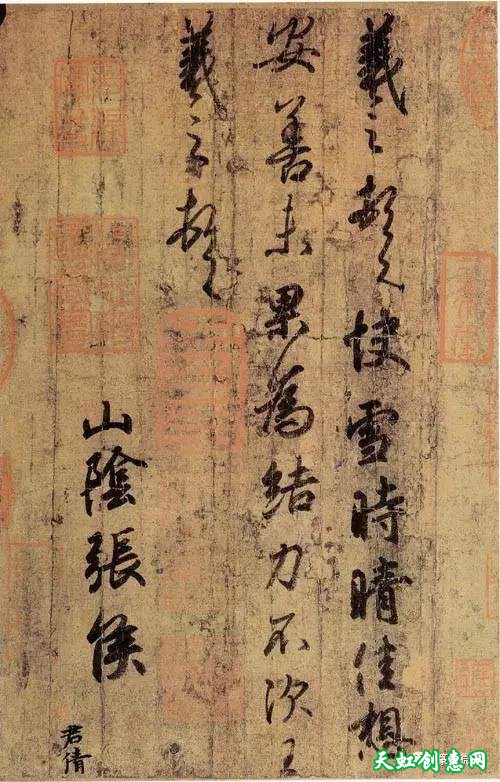 羲之頓首快雪時晴佳想
安善未果為結力不次王
羲之頓首
山陰張侯
君倩
天虹创意网